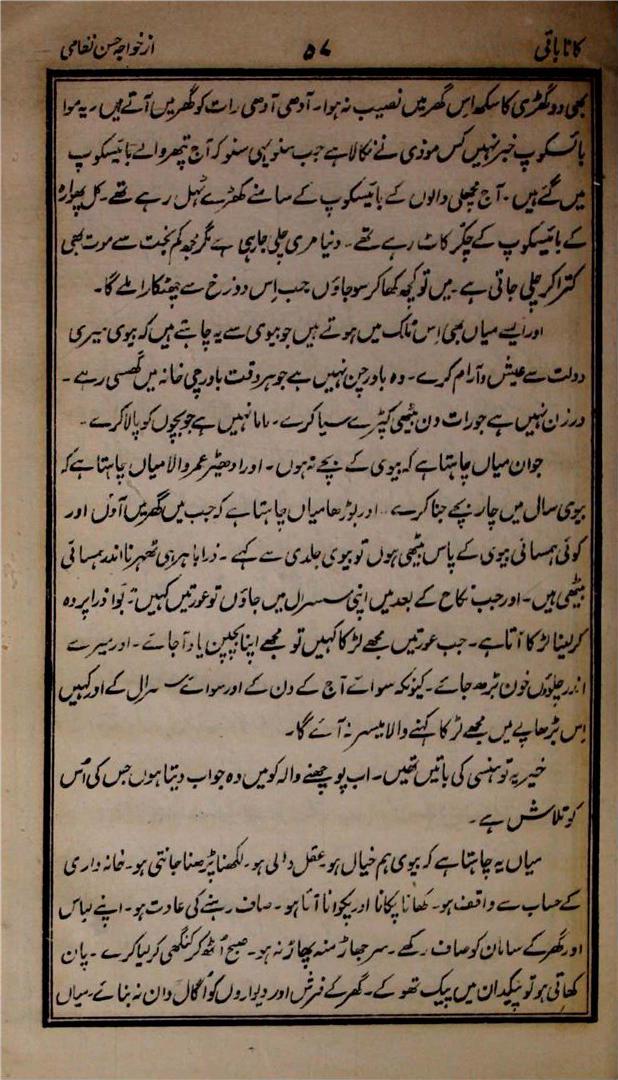 کانا باقی ۵۷ از خواجہ حسن نظامی
بھی دو گھڑی کا سکھ اس گھر میں نصیب نہ ہوا۔ آدھی آدھی رات کو گھر میں آتے ہیں۔ یہ موا
بائسکوپ خبر نہیں کس موذی نے نکالا ہے جب سنو یہی سنو کہ آج پتھر والے بائیسکوپ
میں گئے ہیں۔ آج مچھلی والوں کے بائیسکوپ کے سامنے کھڑے ٹہل رہے تھے۔ کل پھوارہ
کے بائیسکوپ کے چکر کاٹ رہے تھے۔ دنیا مری چلی جا رہی ہے مگر مجھ کم بخت سے موت بھی
کترا کر چلی جاتی ہے۔ میں تو کچھ کھا کر سو جاؤں جب اس دوزخ سے چھٹکارا ملے گا۔
اور ایسے میاں بھی اس ملک میں ہوتے ہیں جو بیوی سے یہ چاہتے ہیں کہ بیوی میری
دولت سے عیش و آرام کرے۔ وہ باورچن نہیں ہے جو ہر وقت باورچی خانہ میں گھسی رہے۔
درزن نہیں ہے جو رات دن بیٹھی کپڑے سیا کرے۔ ماما نہیں ہے جو بچوں کو پالا کرے۔
جوان میاں چاہتا ہے کہ بیوی کے بچے نہ ہوں۔ اور ادھیڑ عمر والا میاں چاہتا ہے کہ
بیوی سال میں چار بچے جنا کرے۔ اور بوڑھا میاں چاہتا ہے کہ جب میں گھر میں آؤں اور
کوئی ہمسائی بیوی کے پاس بیٹھی ہوں تو بیوی جلدی سے کہے۔ ذرا باہر ہی ٹھہرنا اندر ہمسائی
بیٹھی ہیں۔ اور جب نکاح کے بعد میں اپنی سسرال میں جاؤں تو عورتیں کہیں۔ بوا ذرا پردہ
کر لینا لڑکا آتا ہے۔ جب عورتیں مجھے لڑکا کہیں تو مجھے اپنا بچپن یاد آ جائے۔ اور میرے
اندر چلوؤں خون بڑھ جائے۔ کیونکہ سوائے آج کے دن کے اور سوائے سسرال کے اور کہیں
اس بڑھاپے میں مجھے لڑکا کہنے والا میسر نہ آئے گا۔
خیر یہ تو ہنسی کی باتیں تھیں۔ اب پوچھنے والہ کو میں وہ جواب دیتا ہوں جس کی اُس
کو تلاش ہے۔
میاں یہ چاہتا ہے کہ بیوی ہم خیال ہو۔ عقل والی ہو۔ لکھنا پڑھنا جانتی ہو۔ خانہ داری
کے حساب سے واقف ہو۔ کھانا پکانا اور پکوانا آتا ہو۔ صاف رہنے کی عادت ہو۔ اپنے لباس
اور گھر کے سامان کو صاف رکھے۔ سر جھاڑ منہ پھاڑ نہ ہو۔ صبح اُٹھ کر کنگھی کر لیا کرے۔ پان
کھاتی ہو تو پیکدان میں پیک تھوکے۔ گھر کے فرش اور دیواروں کو اُگال دان نہ بنائے۔ میاں